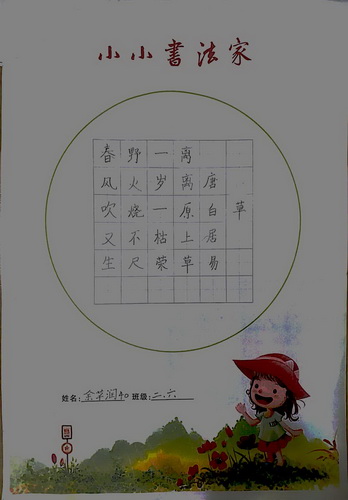 小小書法家
草
唐白居易
离离原上草
一岁一枯荣
野火烧不尽
春风吹又生
姓名: 班级:二.六